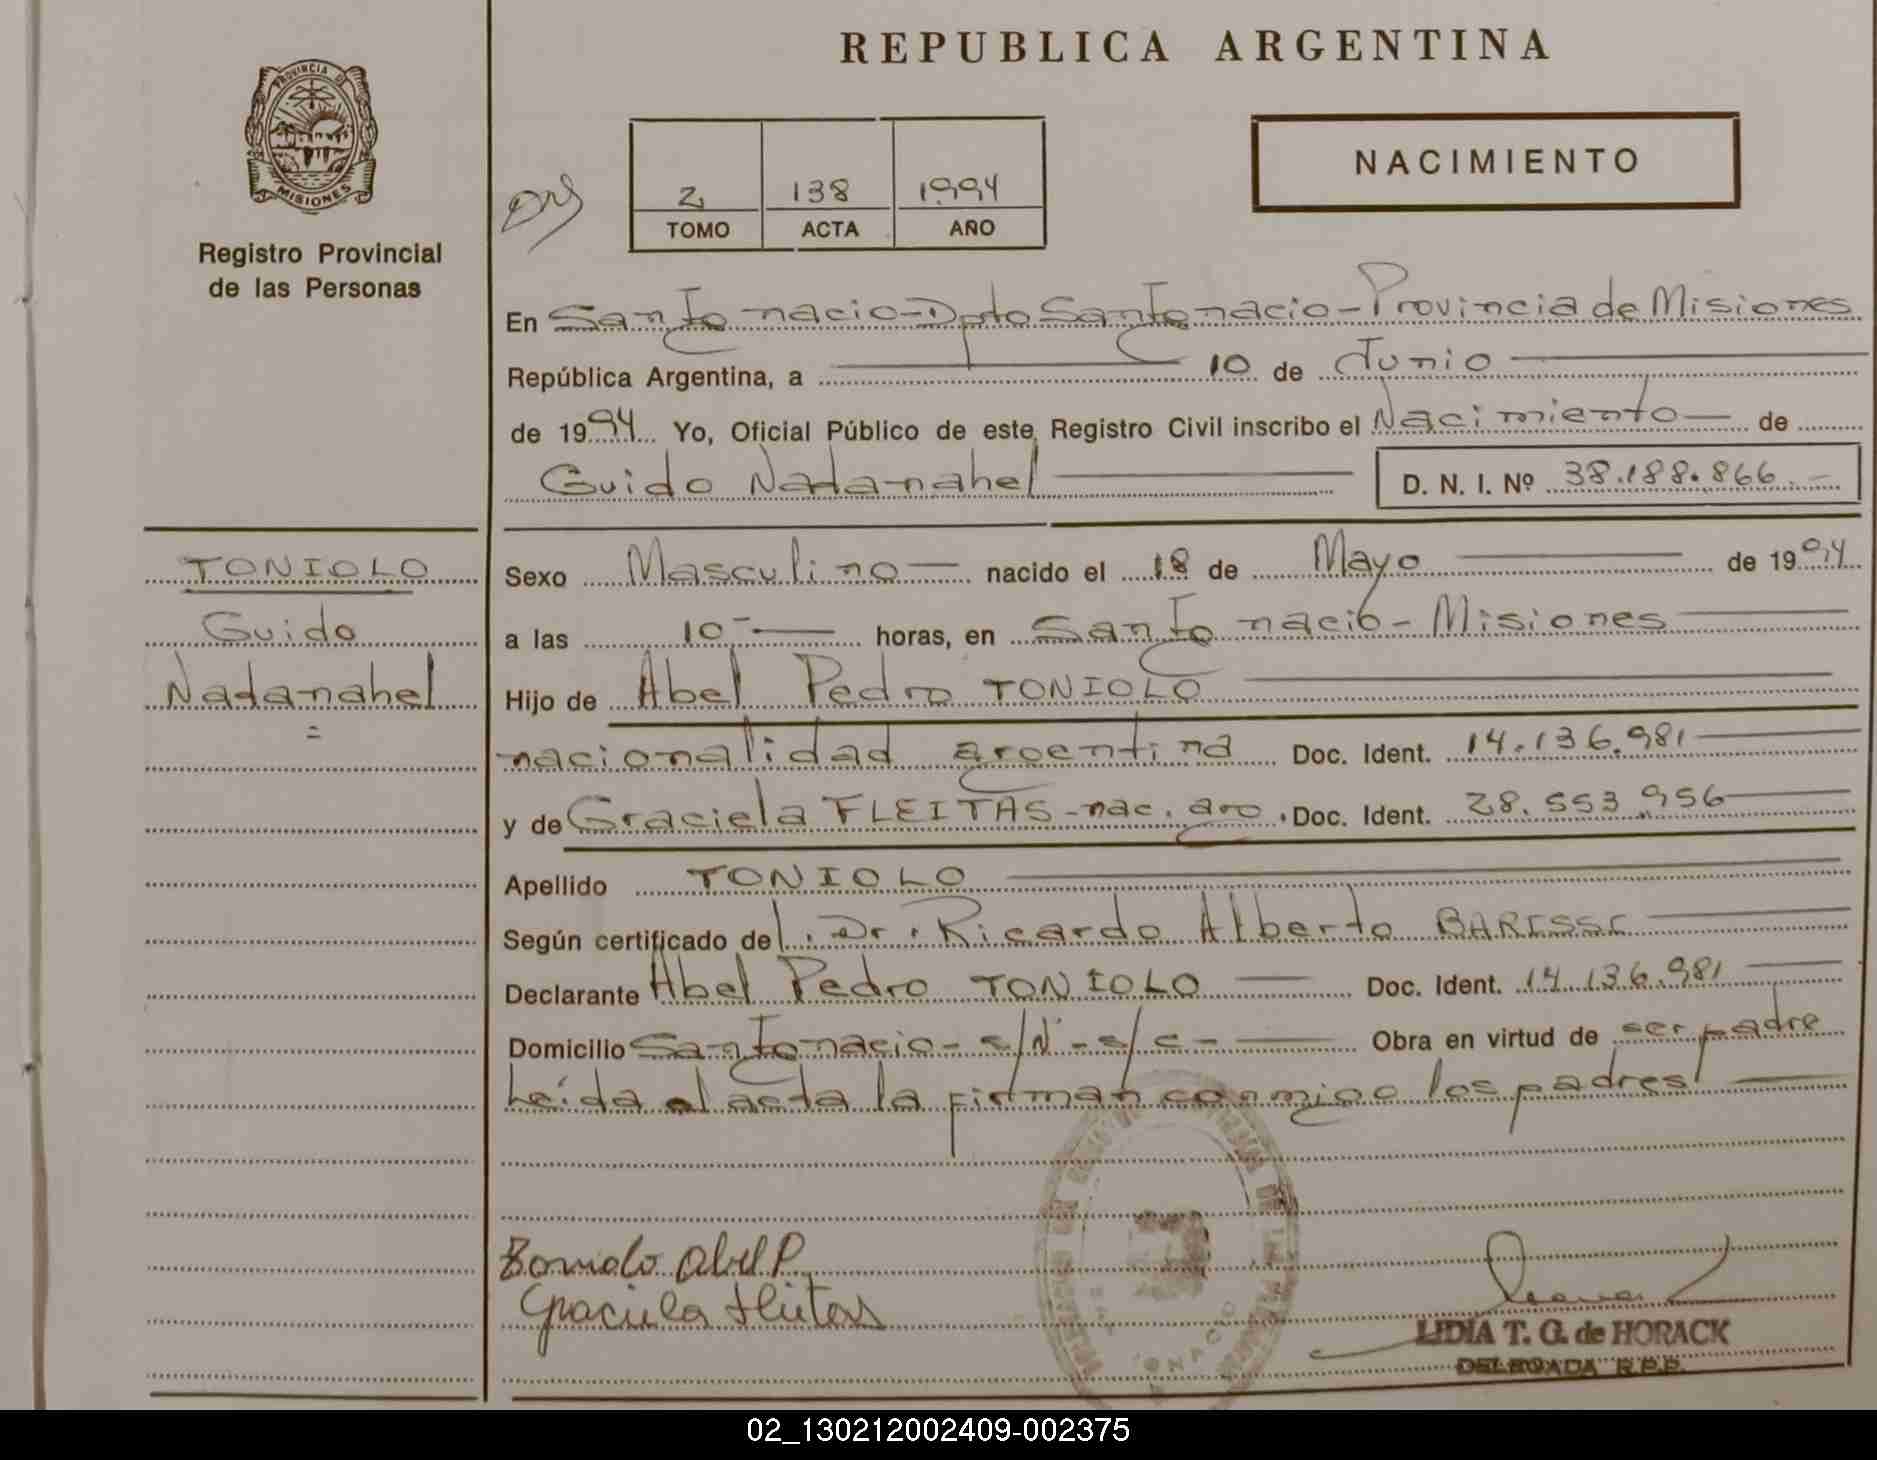 REPUBLICA ARGENTINA
PROVINCIA DE
MISIONES
Registro Provincial
de las Personas
2 138 1994
TOMO ACTA AÑO
NACIMIENTO
En San Ignacio-Dpto San Ignacio-Provincia de Misiones
República Argentina, a 10 de Junio
de 1994 Yo, Oficial Público de este Registro Civil inscribo el Nacimiento de
Guido Natanahel D. N. I. Nº 38.188.866.-
TONIOLO
Guido
Natanahel
=
Sexo Masculino nacido el 18 de Mayo de 1994
a las 10- horas, en San Ignacio - Misiones
Hijo de Abel Pedro TONIOLO
nacionalidad argentina Doc. Ident. 14.136.981
y de Graciela FLEITAS-nac. arg. Doc. Ident. 28.553.956
Apellido TONIOLO
Según certificado del. Dr. Ricardo Alberto
Declarante Abel Pedro TONIOLO Doc. Ident. 14.136.981
Domicilio San Ignacio- s/Nº-s/c- Obra en virtud de ser padre
Leída el acta la firman conmigo los padres
Toniolo Abel P.
Graciela Fleitas
LIDIA T. G. de HORACK
DELEGADA R.P.P.
02_130212002409-002375